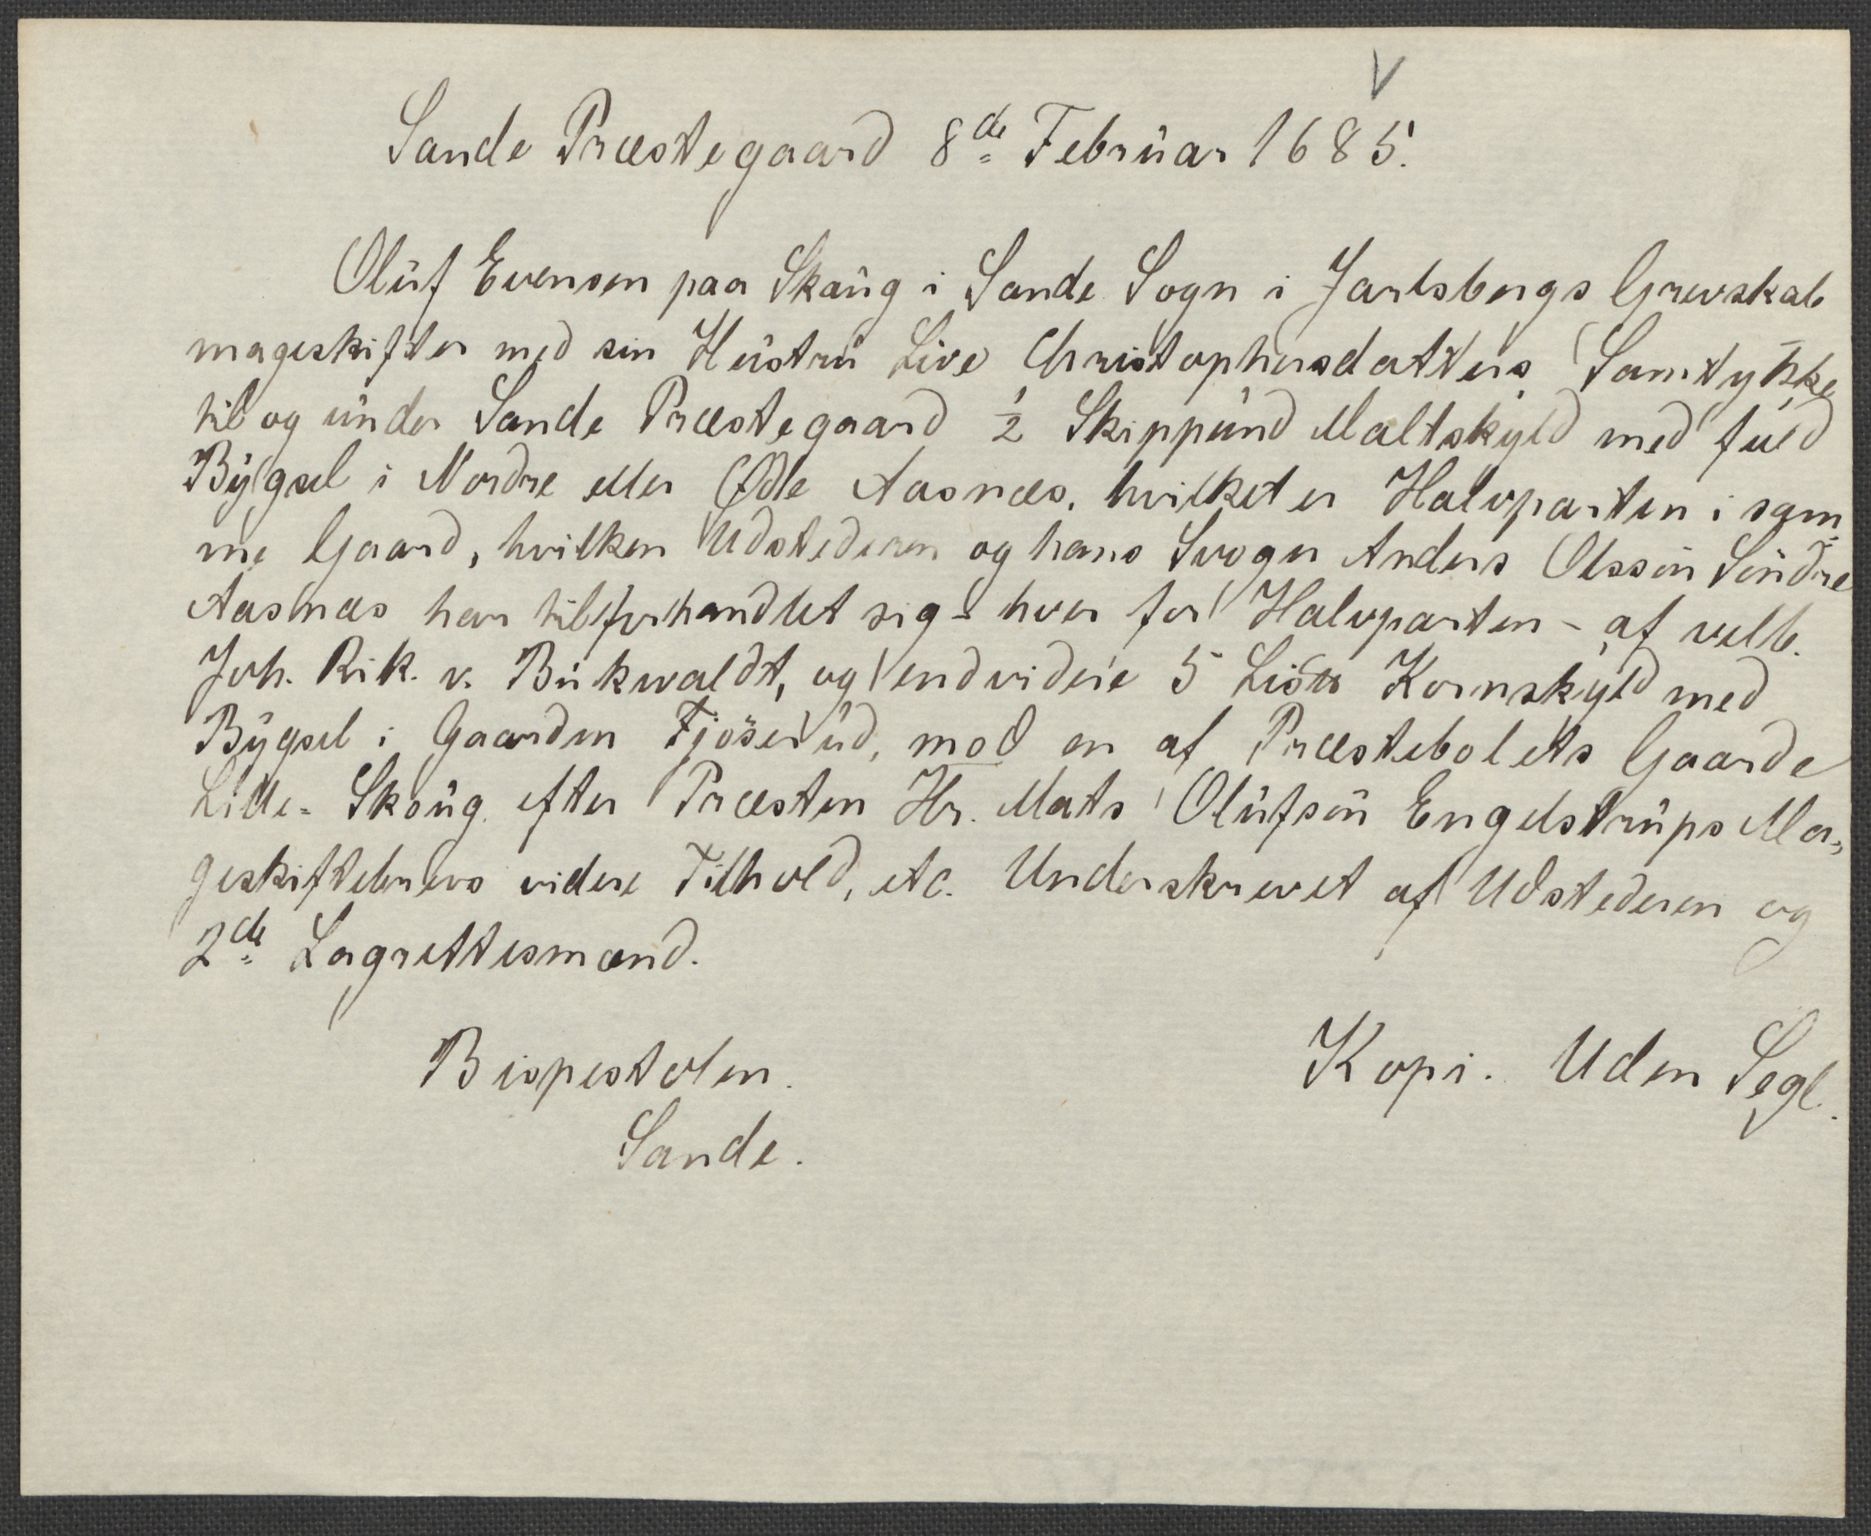 V
Sande Præstegaard 8de Februar 1685.
Oluf Evensen paa Skaug i Sande Sogn i Jarlsbergs Grevskab
mageskifter med sin Hustru Live Christophersdatters Samtykke
til og under Sande Præstegaard ½ Skippund Maltskyld med fuld
Bygsel i Nordre eller Øde Aasnæs, hvilket er Halvparten i sam-
me Gaard, hvilken Udstederen og hans Svoger Anders Olssøn Søndre
Aasnæs har tilforhandlet sig - hver for Halvparten - af velb.
Joh. Rik. v. Bukwaldt, og endvidere 5 Lis℔ Kornskyld med
Bygsel i Gaarden Fjøserud, mod en af Præstebolets Gaarde
Lille-Skoug efter Præsten Hr. Mats Olufsøn Engelstrups Ma-
geskiftebrevs videre Tilhold, etc. Underskrevet af Udstederen og
2de Lagrettesmænd.
Bispestolen.
Kopi. Uden Segl.
Sande.